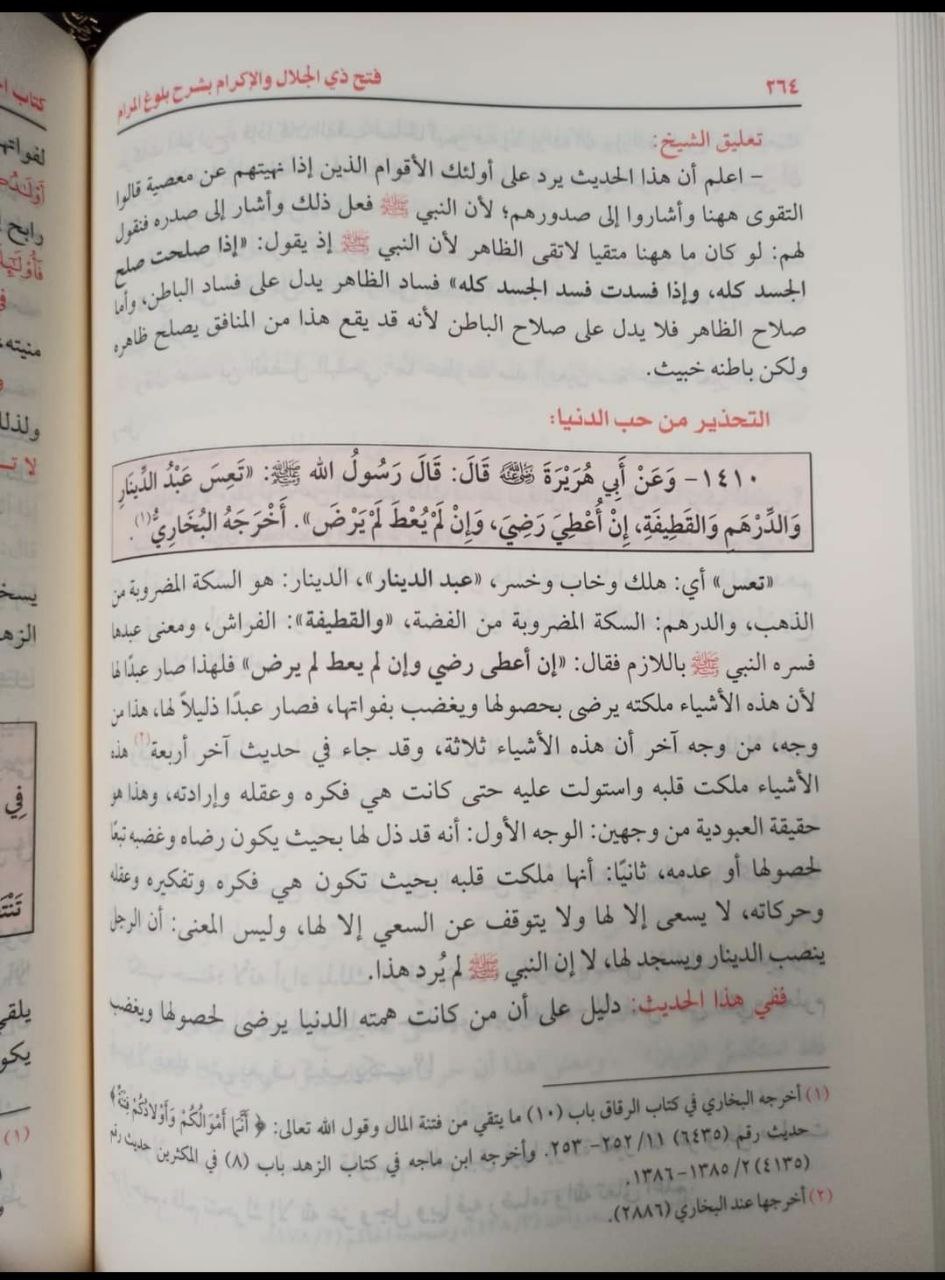 ٢٦٤
فتح ذي الجلال والإكرام بشرح بلوغ المرام
تعليق الشيخ:
- اعلم أن هذا الحديث يرد على أولئك الأقوام الذين إذا نهيتهم عن معصية قالوا
التقوى ههنا وأشاروا إلى صدورهم؛ لأن النبي ﷺ فعل ذلك وأشار إلى صدره فنقول
لهم: لو كان ما ههنا متقيا لاتقى الظاهر لأن النبي ﷺ إذ يقول: «إذا صلحت صلح
الجسد كله، وإذا فسدت فسد الجسد كله» فساد الظاهر يدل على فساد الباطن، وأما
صلاح الظاهر فلا يدل على صلاح الباطن لأنه قد يقع هذا من المنافق يصلح ظاهره
ولكن باطنه خبيث.
التحذير من حب الدنيا:
١٤١٠- وَعَنْ أَبِي هُرَيْرَةَ رضي الله عنه قَالَ: قَالَ رَسُولُ الله ﷺ: «تَعِسَ عَبْدُ الدِّينَارِ
وَالدِّرْهَمِ وَالقَطِيفَةِ، إِنْ أُعْطِيَ رَضِيَ، وَإِنْ لَمْ يُعْطَ لَمْ يَرْضَ». أَخْرَجَهُ البُخَارِيُّ(١).
«تعس» أي: هلك وخاب وخسر، «عبد الدينار»، الدينار: هو السكة المضروبة من
الذهب، والدرهم: السكة المضروبة من الفضة، «والقطيفة»: الفراش، ومعنى عبدها
فسره النبي ﷺ باللازم فقال: «إن أعطى رضي وإن لم يعط لم يرض» فلهذا صار عبدًا لها
لأن هذه الأشياء ملكته يرضى بحصولها ويغضب بفواتها، فصار عبدًا ذليلاً لها، هذا من
وجه، من وجه آخر أن هذه الأشياء ثلاثة، وقد جاء في حديث آخر أربعة(٢) هذه
الأشياء ملكت قلبه واستولت عليه حتى كانت هي فكره وعقله وإرادته، وهذا هو
حقيقة العبودية من وجهين: الوجه الأول: أنه قد ذل لها بحيث يكون رضاه وغضبه تبعًا
لحصولها أو عدمه، ثانيًا: أنها ملكت قلبه بحيث تكون هي فكره وتفكيره وعقله
وحركاته، لا يسعى إلا لها ولا يتوقف عن السعي إلا لها، وليس المعنى: أن الرجل
ينصب الدينار ويسجد لها، لا إن النبي ﷺ لم يُرد هذا.
ففي هذا الحديث: دليل على أن من كانت همته الدنيا يرضى لحصولها ويغضب
(١) أخرجه البخاري في كتاب الرقاق باب (١٠) ما يتقي من فتنة المال وقول الله تعالى: ﴿أَنَّمَا أَمْوَالُكُمْ وَأَوْلَادُكُمْ فِتْنَةٌ﴾
حديث رقم (٦٤٣٥) ١١/ ٢٥٢- ٢٥٣. وأخرجه ابن ماجه في كتاب الزهد باب (٨) في المكثرين حديث رقم
(٤١٣٥) ٢/ ١٣٨٥-١٣٨٦.
(٢) أخرجها عند البخاري (٢٨٨٦).